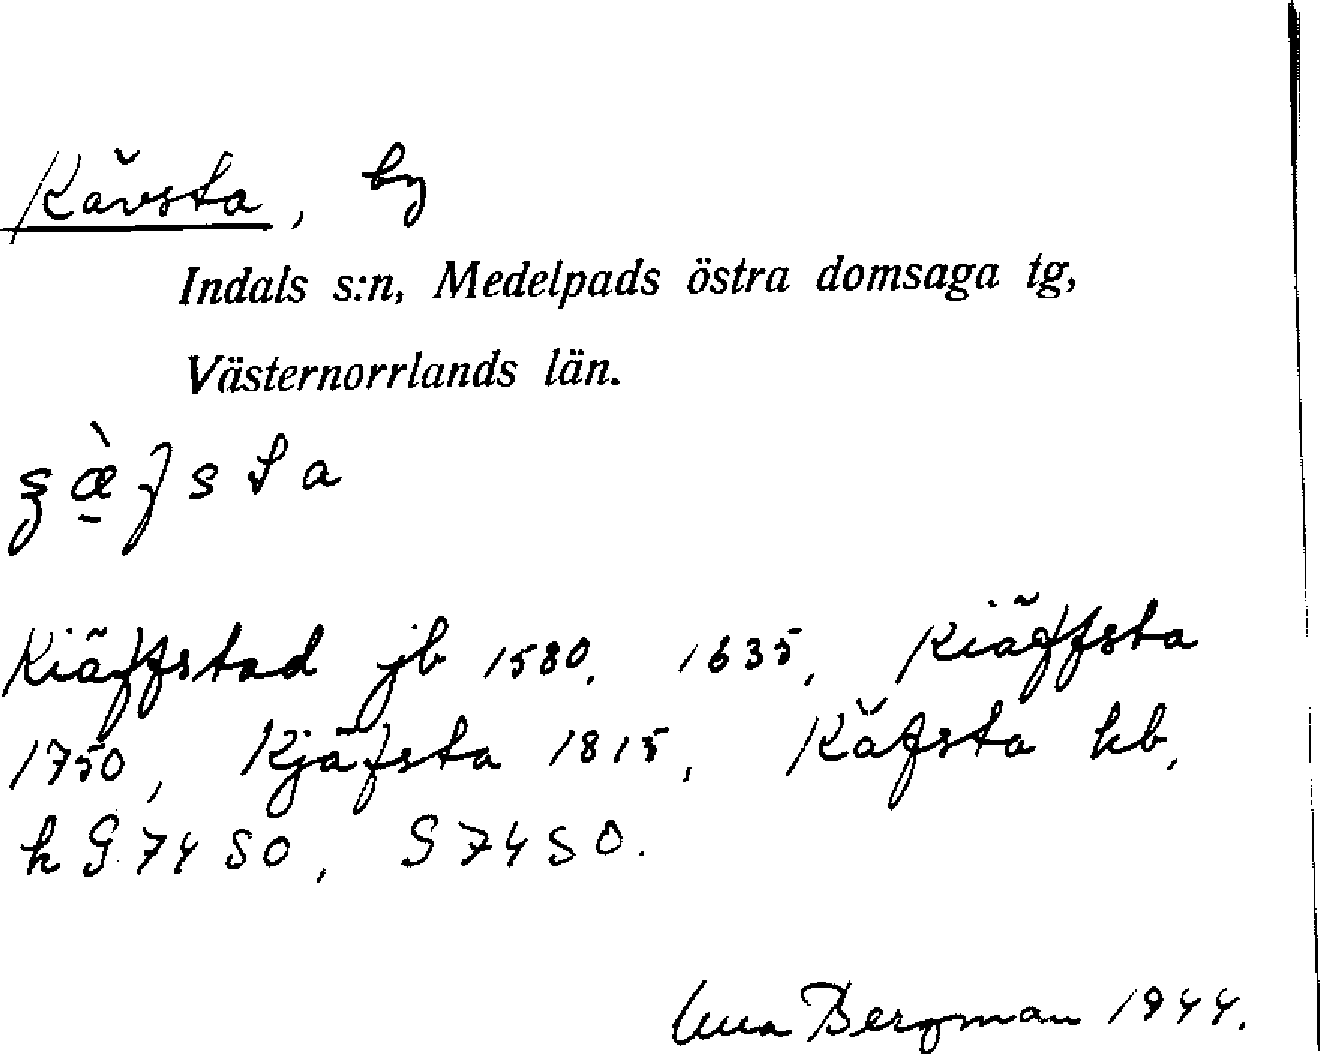 Kävsta, by
Indals s:n, Medelpads östra domsaga tg,
Västernorrlands län.
ʂæ̠̀fsta
Kiäffstad jb 1580, 1635, Kiäffsta
1750, Kjäfsta 1815, Käfsta hb,
k G 74 SO, S 74 SO.
Bergman 1944.